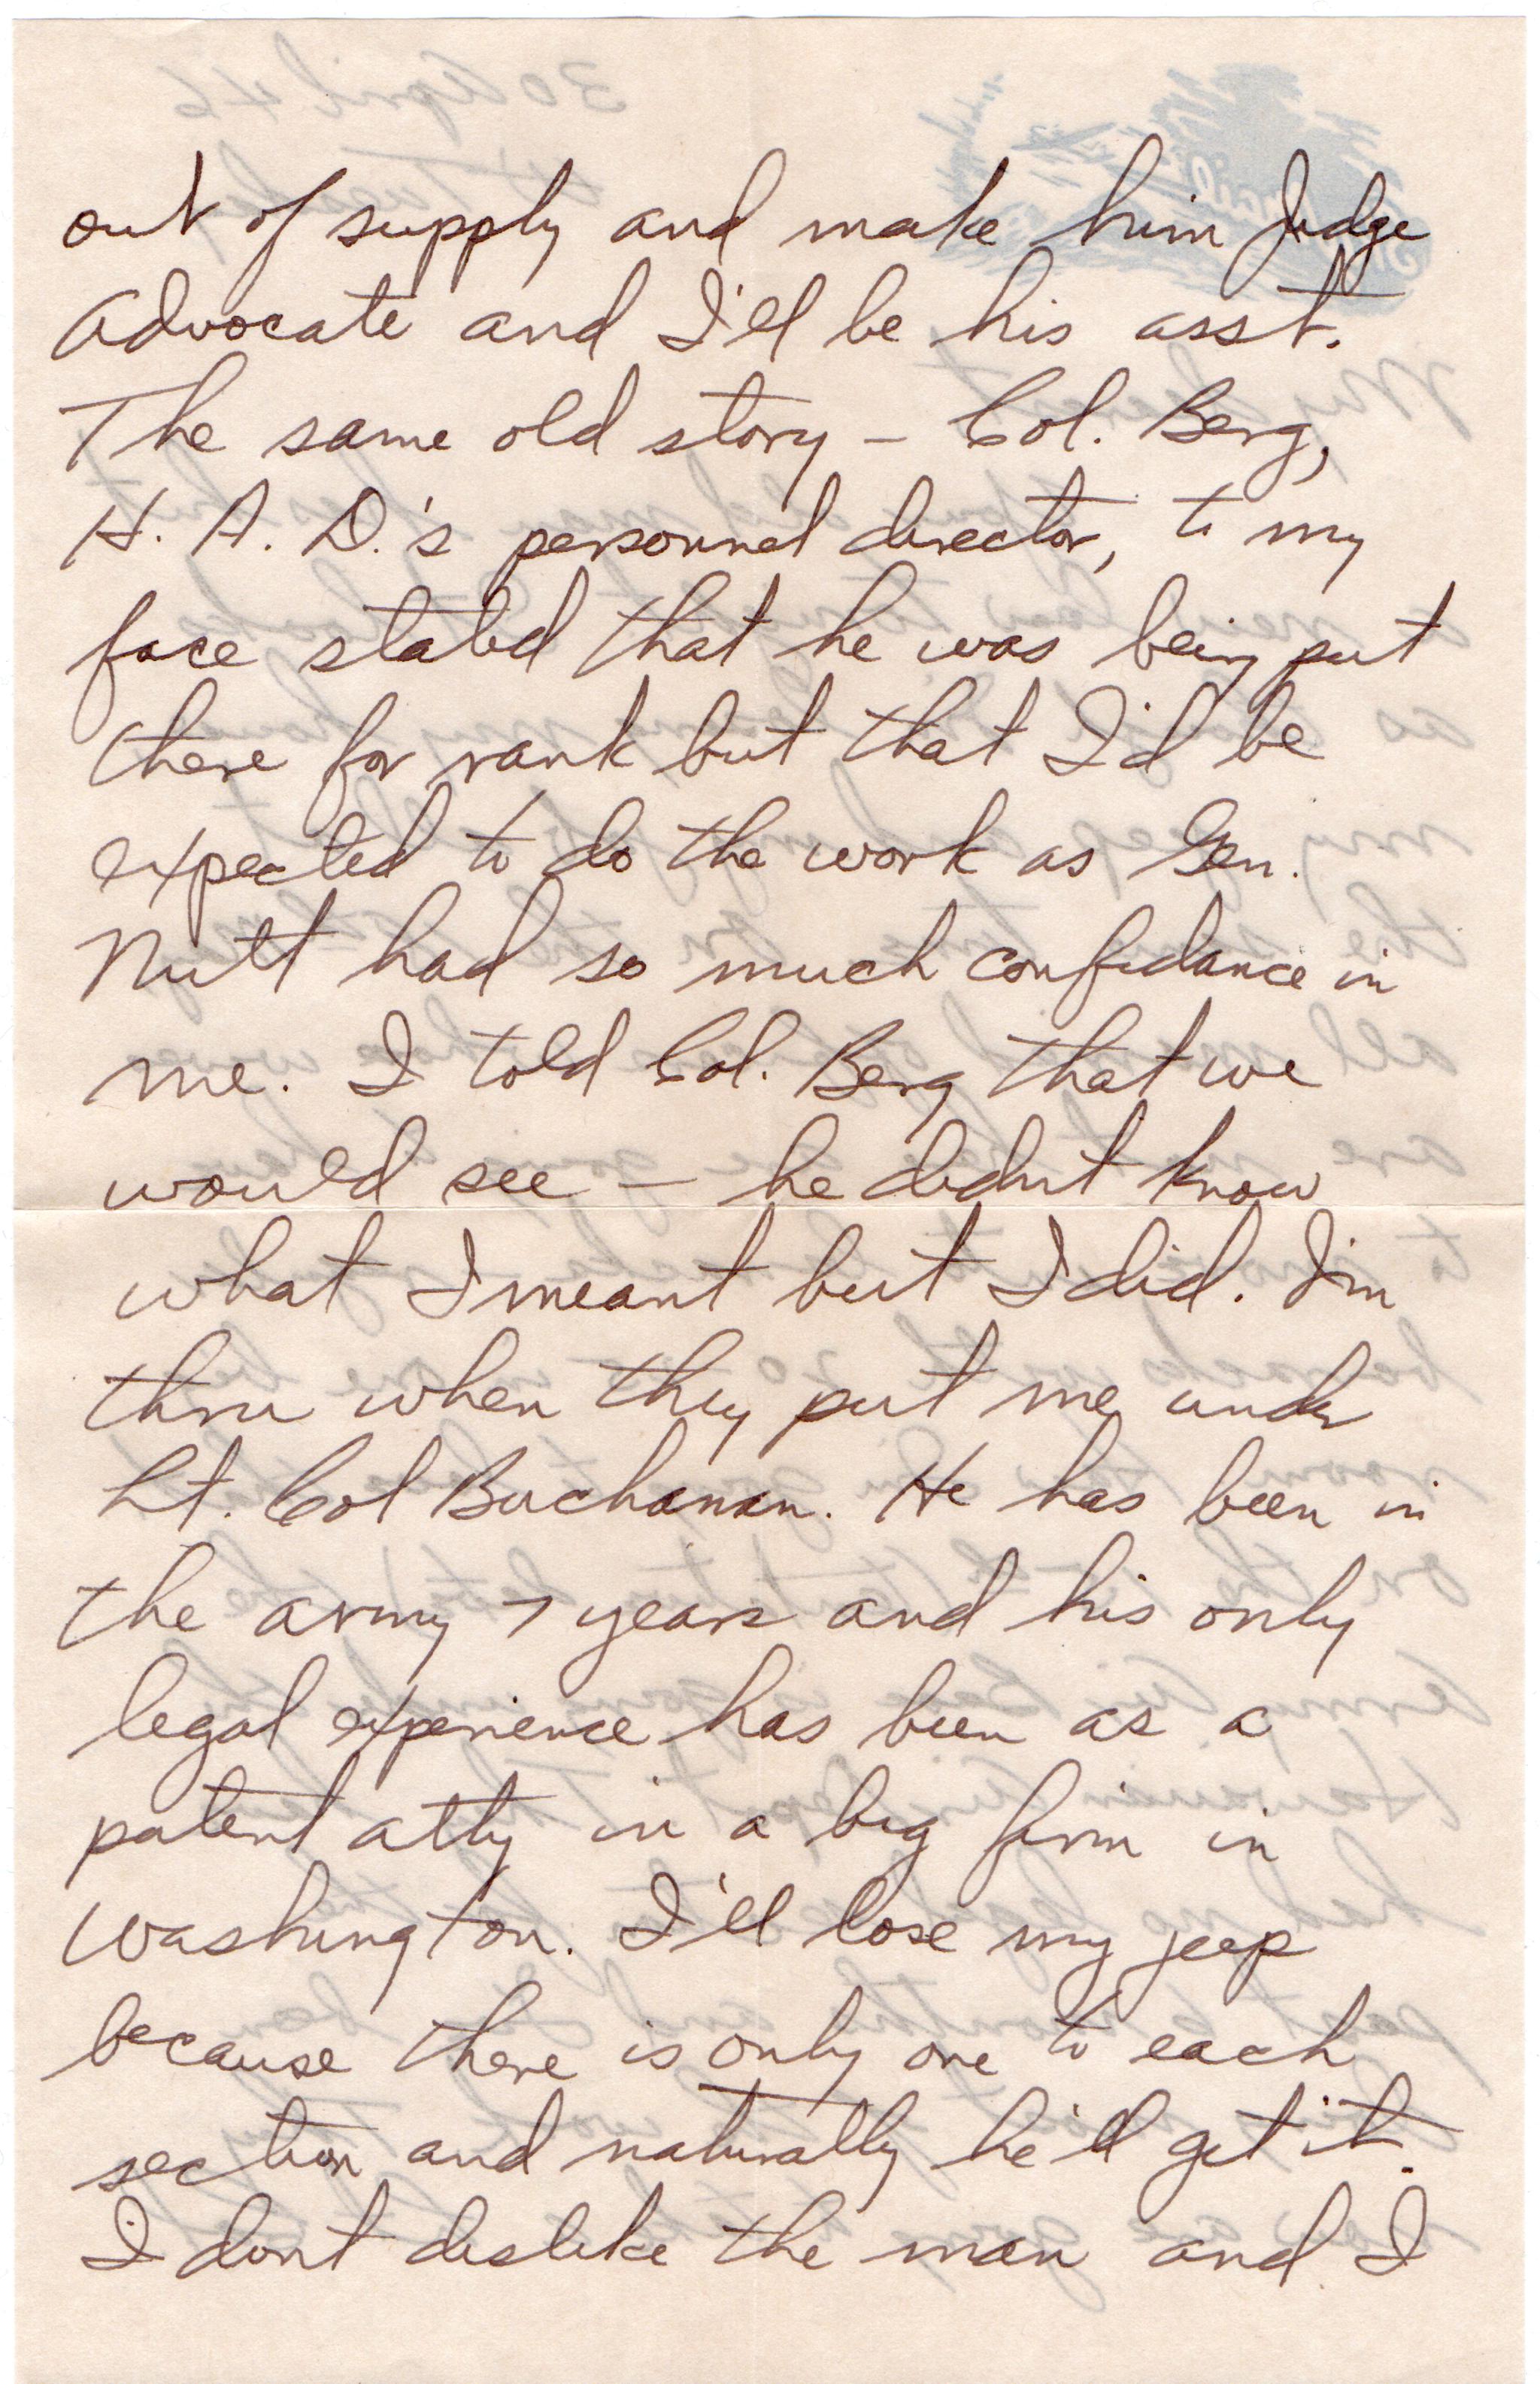 out of supply and make him Judge
Advocate and I'll be his asst.
The same old story – Col. Berg,
H. A. D.'s personnel director, to my
face stated that he was being put
there for rank but that I'd be
expected to do the work as Gen.
Nutt had so much confidance in
me. I told Col. Berg that we
would see – he didn't know
what I meant but I did. I'm
thru when they put me under
Lt. Col Buchanan. He has been in
the army 7 years and his only
legal experience has been as a
patent atty in a big firm in
Washington. I'll lose my jeep
because there is only one to each
section and naturally he'll get it.
I dont dislike the man and I